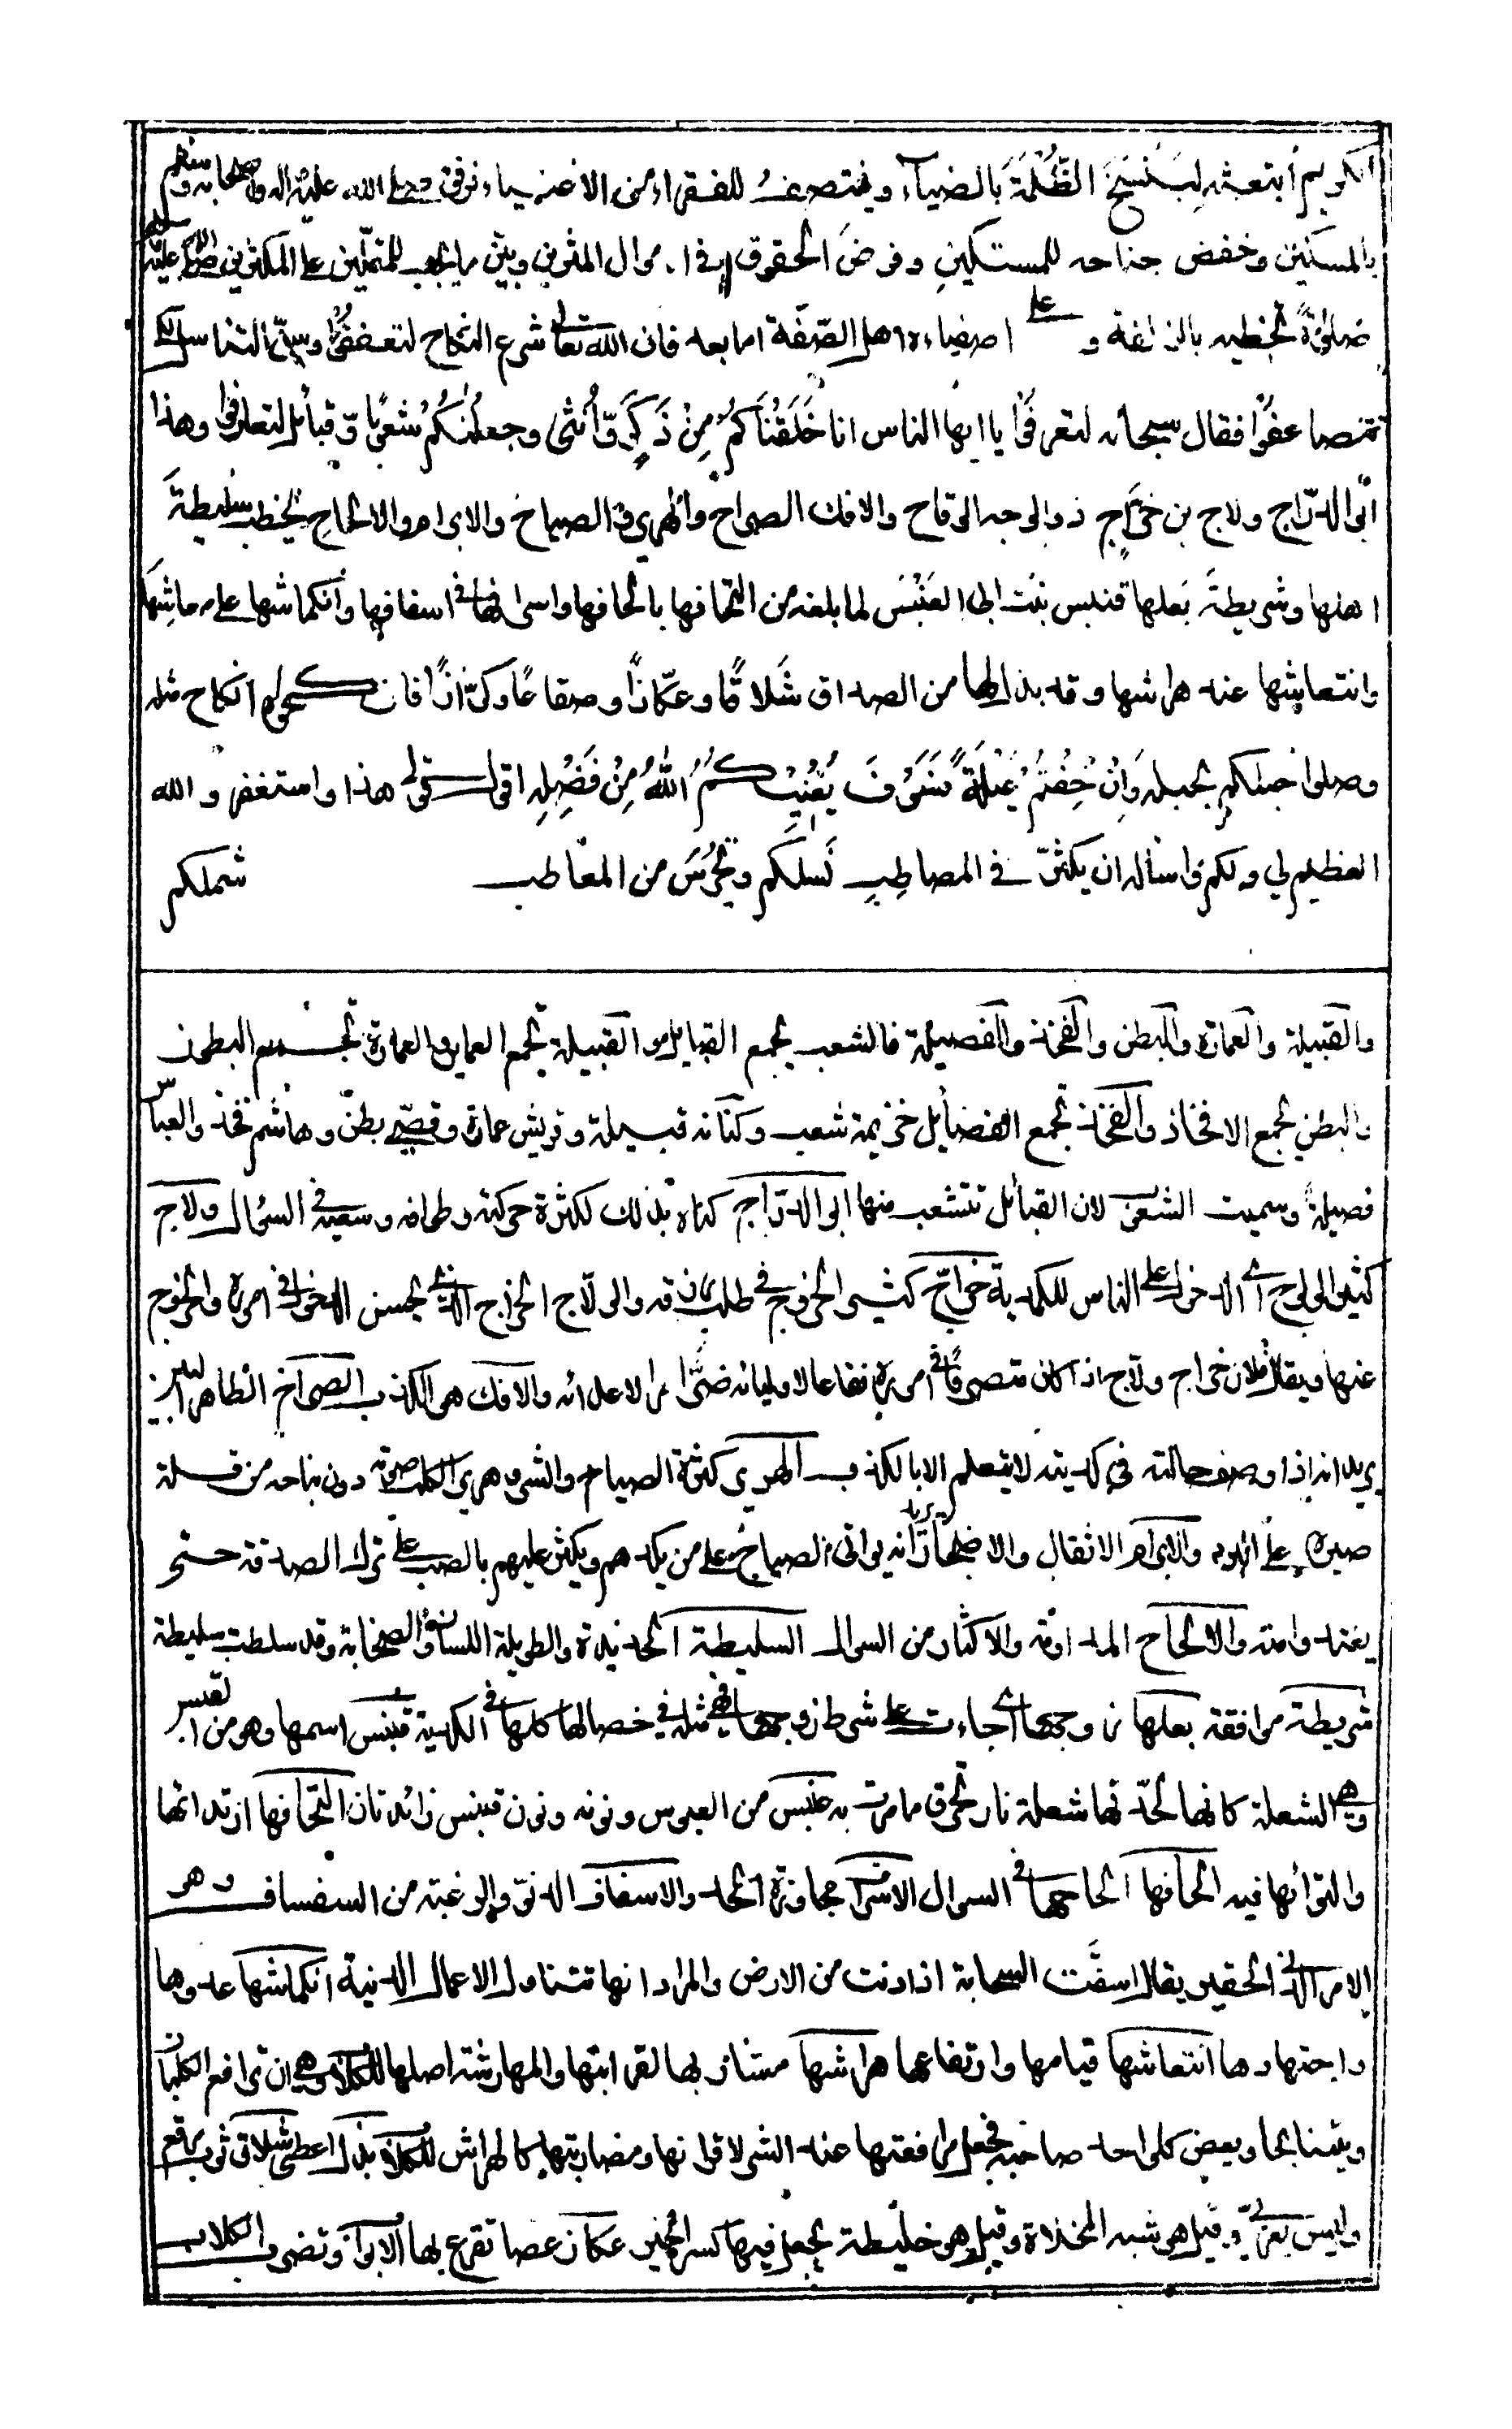 الكريم ابتعثه لِيَنْسَخَ الظُّلْمَةَ بالضياء وينتصف للفقراء من الاغنياء فرفق صلى الله عليه واله واصحابه وسلم
بالمسكين وخفض جناحه للمستكين وفرض الحقوق في اموال المثرين وبين ما يجب للمقلين على المكثرين صلى الله عليه
صلوةً تحظيه بالزلفة وعلى اصفياءه اهل الصفّة اما بعد فان الله تعالى شرع النكاح لتعففوا وسنّ التناسل لكى
تتضاعفوا فقال سبحانه لتعرفوا يا ايها الناس انا خَلَقْنَاكُمْ مِنْ ذَكَرٍ وَّأُنثى وجعلْنٰكُمْ شعوبًا وّقبائل لتعارفوا وهذا
ابو الدرّاج ولاج بن خرّاج ذو الوجه الوقاح والافك الصراح والهرير والصياح والابرام والالحاح يخطب سليطةَ
اهلها وشريطةَ بَعلها قنبس بنت ابى العَنْبَس لما بلغه من التحافها بالحافها واسرافها فى اسفافها وانكماشها على معاشِها
وانتعاشها عند هراشها وقد بذل لها من الصداق شَلاقًا وعكّازًا وصقاعًا وكرّازًا فانكحوه انكاح مثله
وصلوا حبلكم بحبله وَاِنْ خِفْتُمْ عَيْلَةً فَسَوْفَ يُغْنِيْكُمُ اللهُ مِنْ فَضْلِهِ اقول قولى هذا واستغفر الله
العظيم لي ولكم واسأله ان يكثرّ في المصاطِبِ نَسلَكم ويَحْرُسَ من المعاطب شملكم
والقبيلة والعمارة والبطن والفخذ والفصيلة فالشعب يجمع القبايل والقبيلة تجمع العماير والعمارة تجمع البطون
والبطن تجمع الافخاذ والفخذ تجمع الفصايل خزيمة شعب وكنانه قبيلة وقريش عمارة وقصيّ بطن وهاشم فخذ والعباس
فصيلة وسميت الشعب لان القبائل تتشعب منها ابو الدرّاج كناه بذلك لكثرة حركته وطوافه وسعيه في السؤال ولاج
كثير الولوج اى الدخول على الناس للكدية خراج كثير الخروج في طلب رزقه والولاج الخراج الذى يحسن الدخول فى اموره والخروج
عنها ويقال فلان خراج ولاج اذا كان متصرفًا فى اموره نفاعا لاوليائه ضرّارا لاعدائه والافك هو الكذب الصراح الظاهر البين
يريد انه اذا وصف حالته في كديته لا يتعلم الا بالكذب الهرير كثرة الصياح والشر وهرير الكلب صوته دون نباحه من قلة
صبره على البرد والابرام الاثقال والاضجار يريد انه يوالى الصياح على من يكدهم ويكثر عليهم بالصبر على ترك الصدقة حتى
يفتدوا منه والالحاح المداومة والاكثار من السوال السليطة الحديدة والطويلة اللسان والصخابة وقد سلطت سليطة
شريطة موافقة بعلها زوجها اى جاءت على شرط زوجها فهى مثله في خصالها كلها فى الكدية قنبس اسمها وهو من القبس
وهو الشعلة كانها لحدّتها شعلة نار تحرق ما مرت به عنبس من العبوس ونونه ونون قنبس زائدتان التحافها ارتداؤها
والتوائها فيه الحافها الحاحها فى السوال الاسراف مجاوزة الحد والاسفاف الدنوّ والرغبة من السفساف وهو
الامر الدنى الحقير يقال اسفَّت السحابة اذا دنت من الارض والمراد انها تتناول الاعمال الدنية انكماشها عدوها
واجتهادها انتعاشها قيامها وارتفاعها هراشها مستاز بها لقرابتها والمهارشة اصلها للكلاب وهي ان ترافع الكلبان
ويتنابحا ويعض كل واحد صاحبه فجعل مرافعتها عند الشر لاقرانها ومضاربتها كالهراش للكلاب بذل اعطى شلاق ثوب مرقع
وليس بعربيّ وقيل هى شبه المخلاة وقيل هو خليطة يجعل فيها كسر الخبز عكاز عصا تقرع بها الابواب وتضرب الكلاب